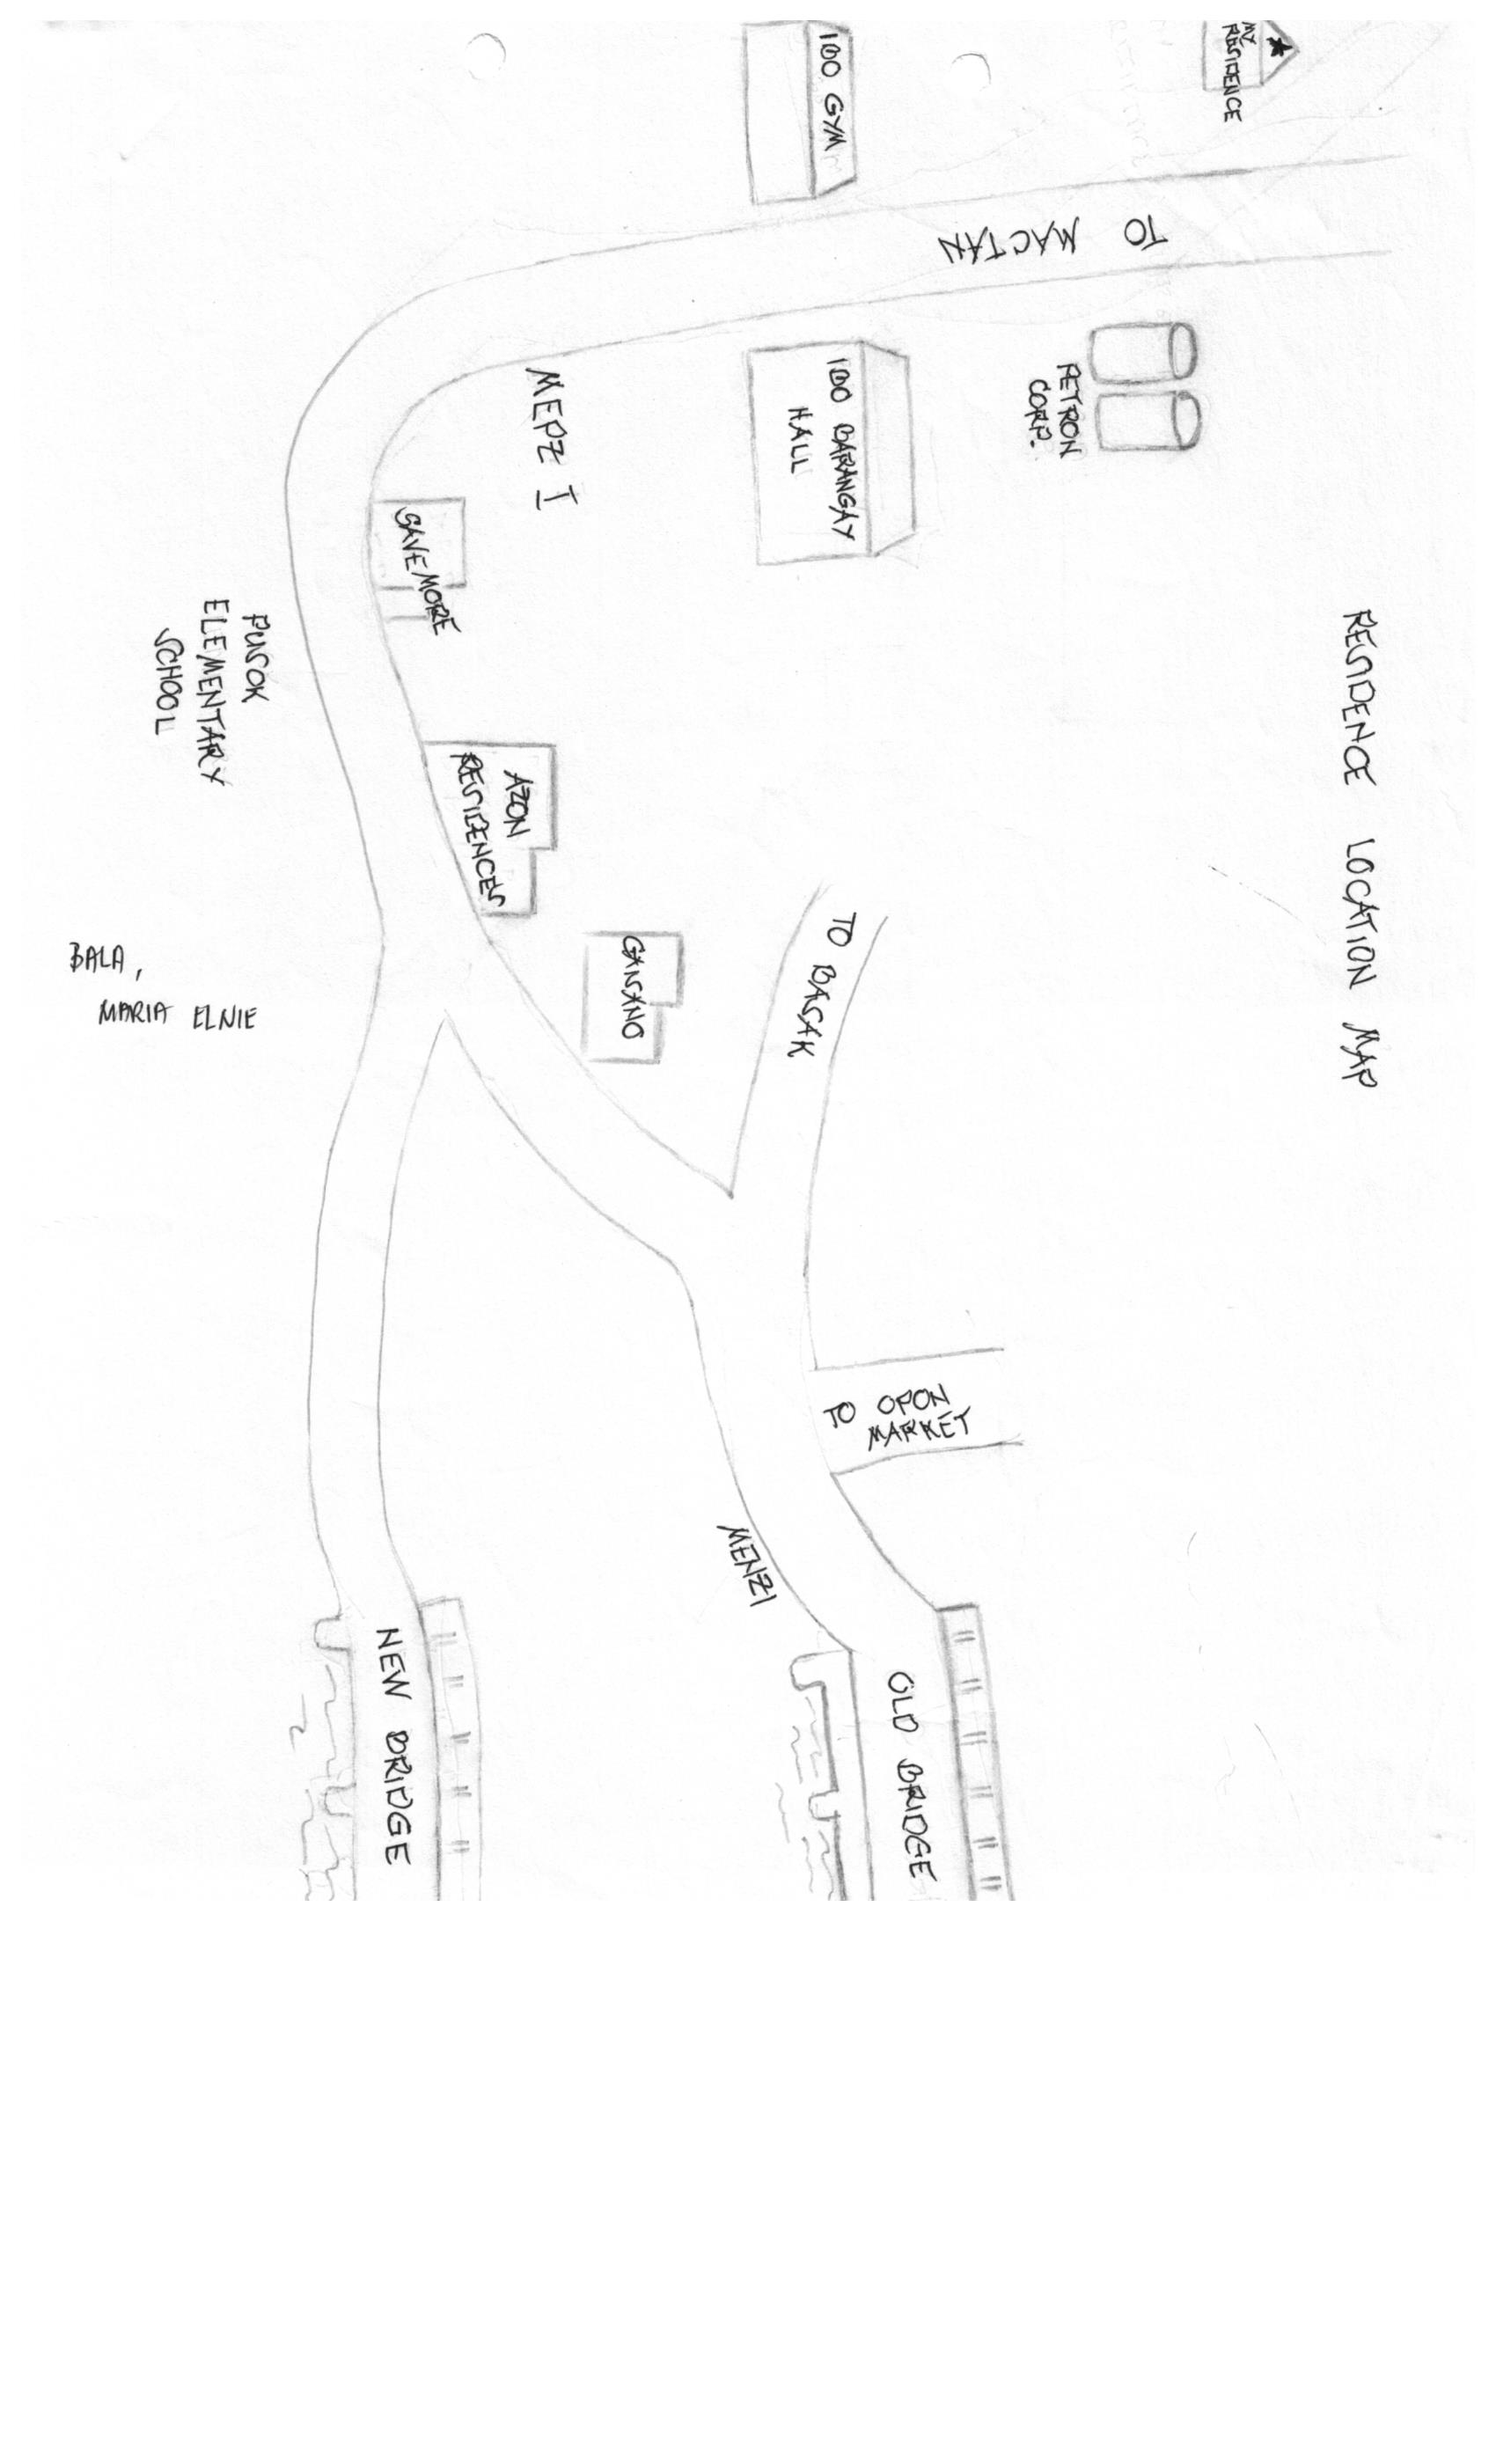 RESIDENCE LOCATION MAP
MY
RESIDENCE
TO MACTAN
PETRON
CORP.
IBO GYM
IBO BARANGAY
HALL
MEPZ I
SAVEMORE
PUSOK
ELEMENTARY
SCHOOL
AZON
RESIDENCES
GAISANO
TO BASAK
TO OPON
MARKET
MENZI
OLD BRIDGE
NEW BRIDGE
BALA,
MARIA ELNIE